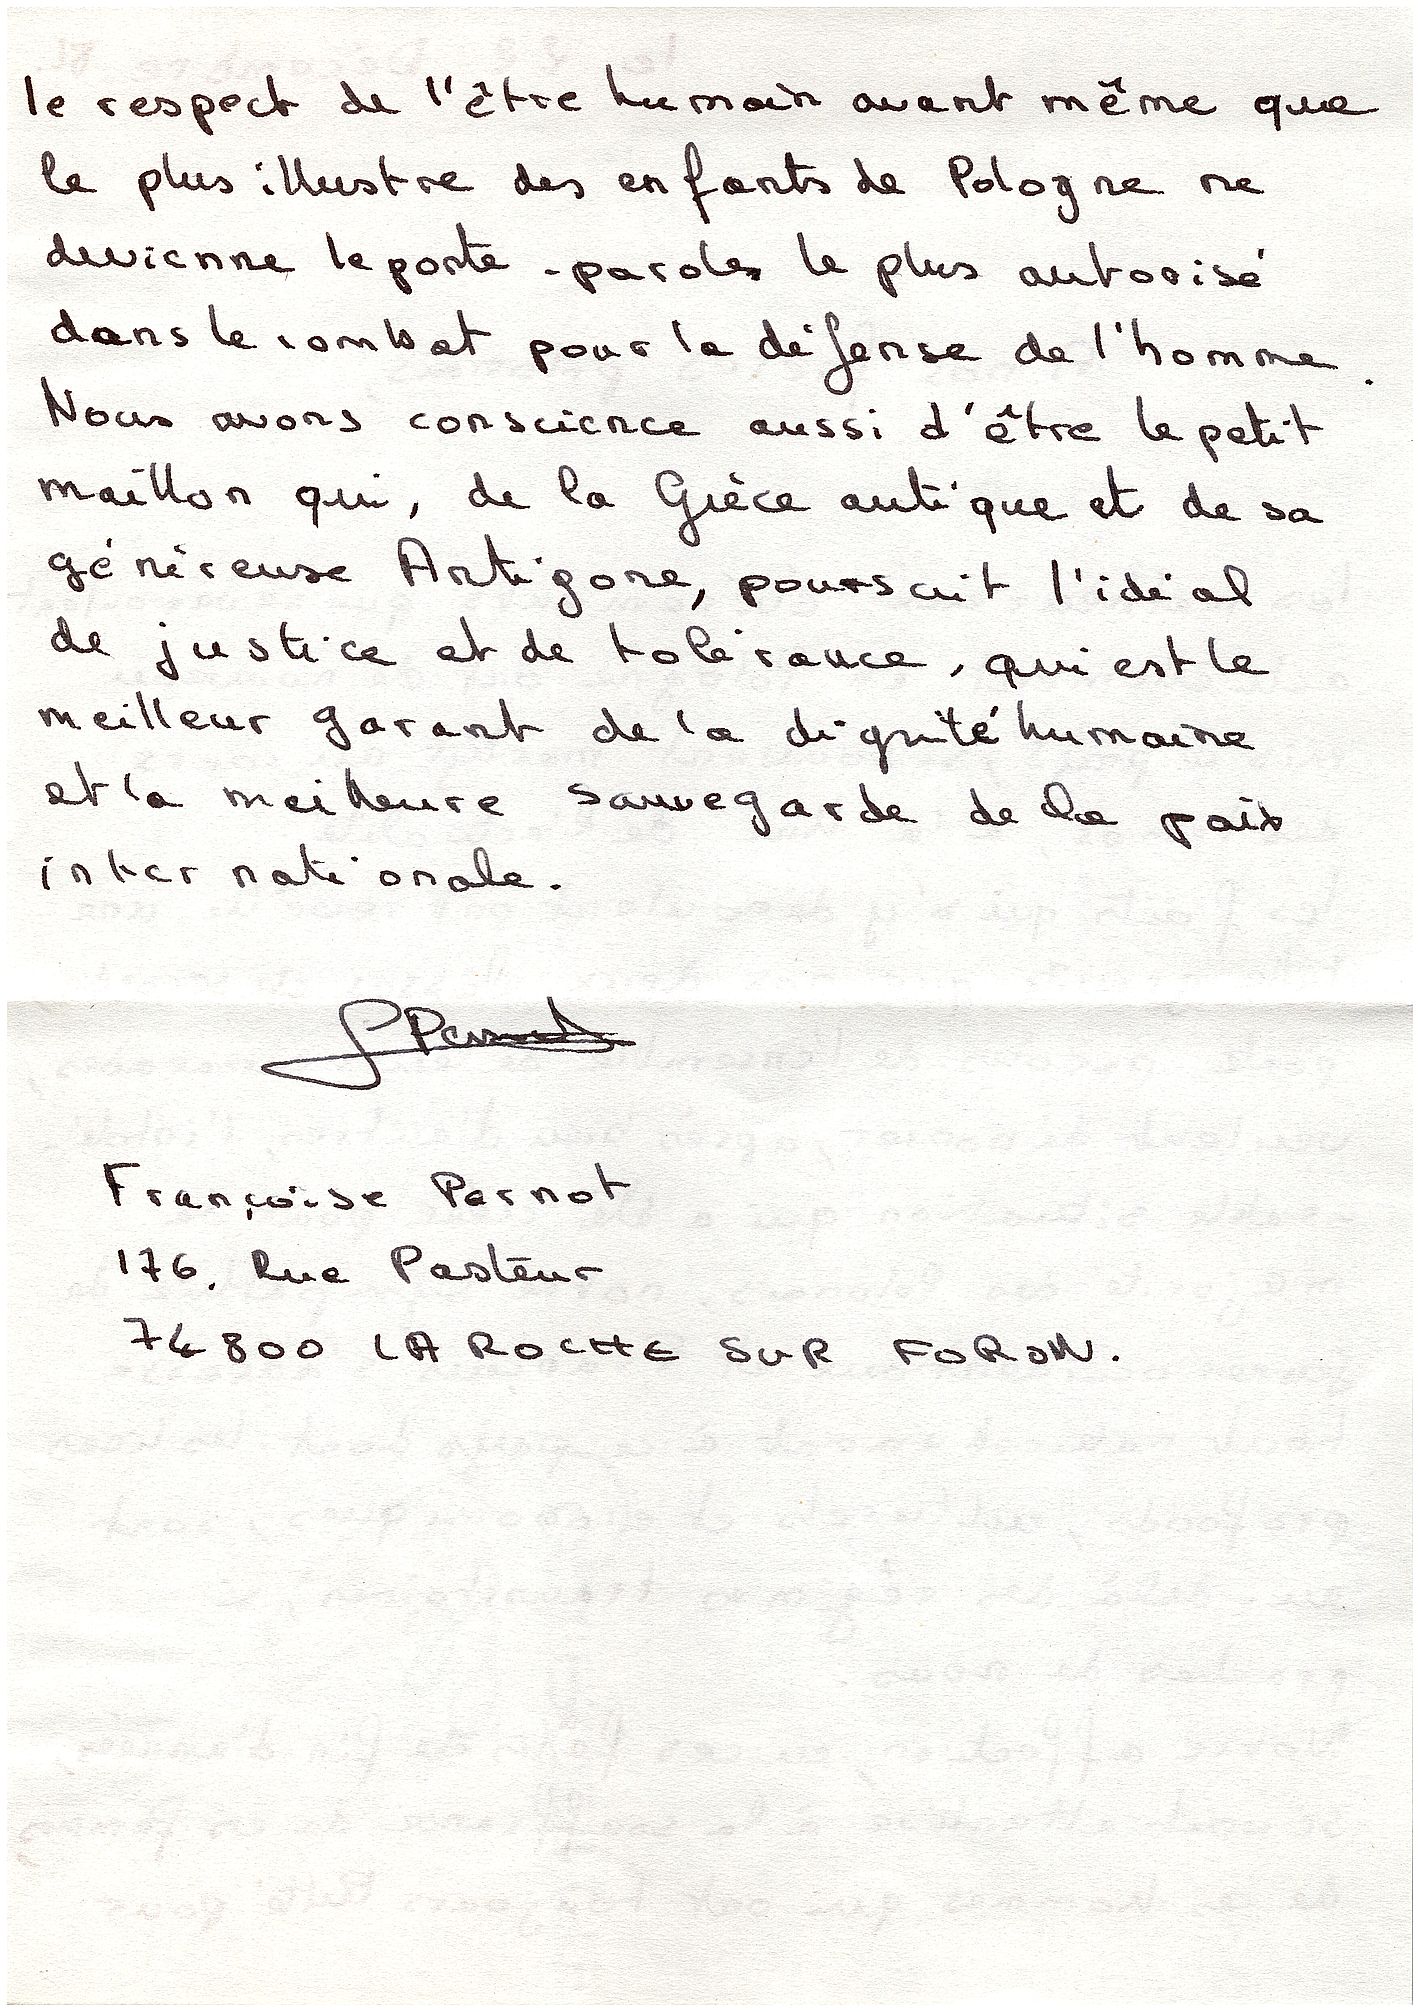 le respect de l'être humain avant même que
le plus illustre des enfants de Pologne ne
devienne le porte-paroles le plus autorisé
dans le combat pour la défense de l'homme.
Nous avons conscience aussi d'être le petit
maillon qui, de la Grèce antique et de sa
généreuse Antigone, poursuit l'idéal
de justice et de tolérance, qui est le
meilleur garant de la dignité humaine
et la meilleure sauvegarde de la paix
internationale.
FPernot
Françoise Pernot
176, Rue Pasteur
74800 LA ROCHE SUR FORON.